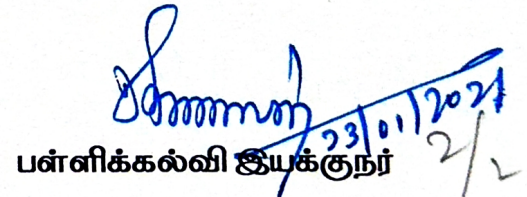 23/01/2021
பள்ளிக்கல்வி இயக்குநர்
2/2